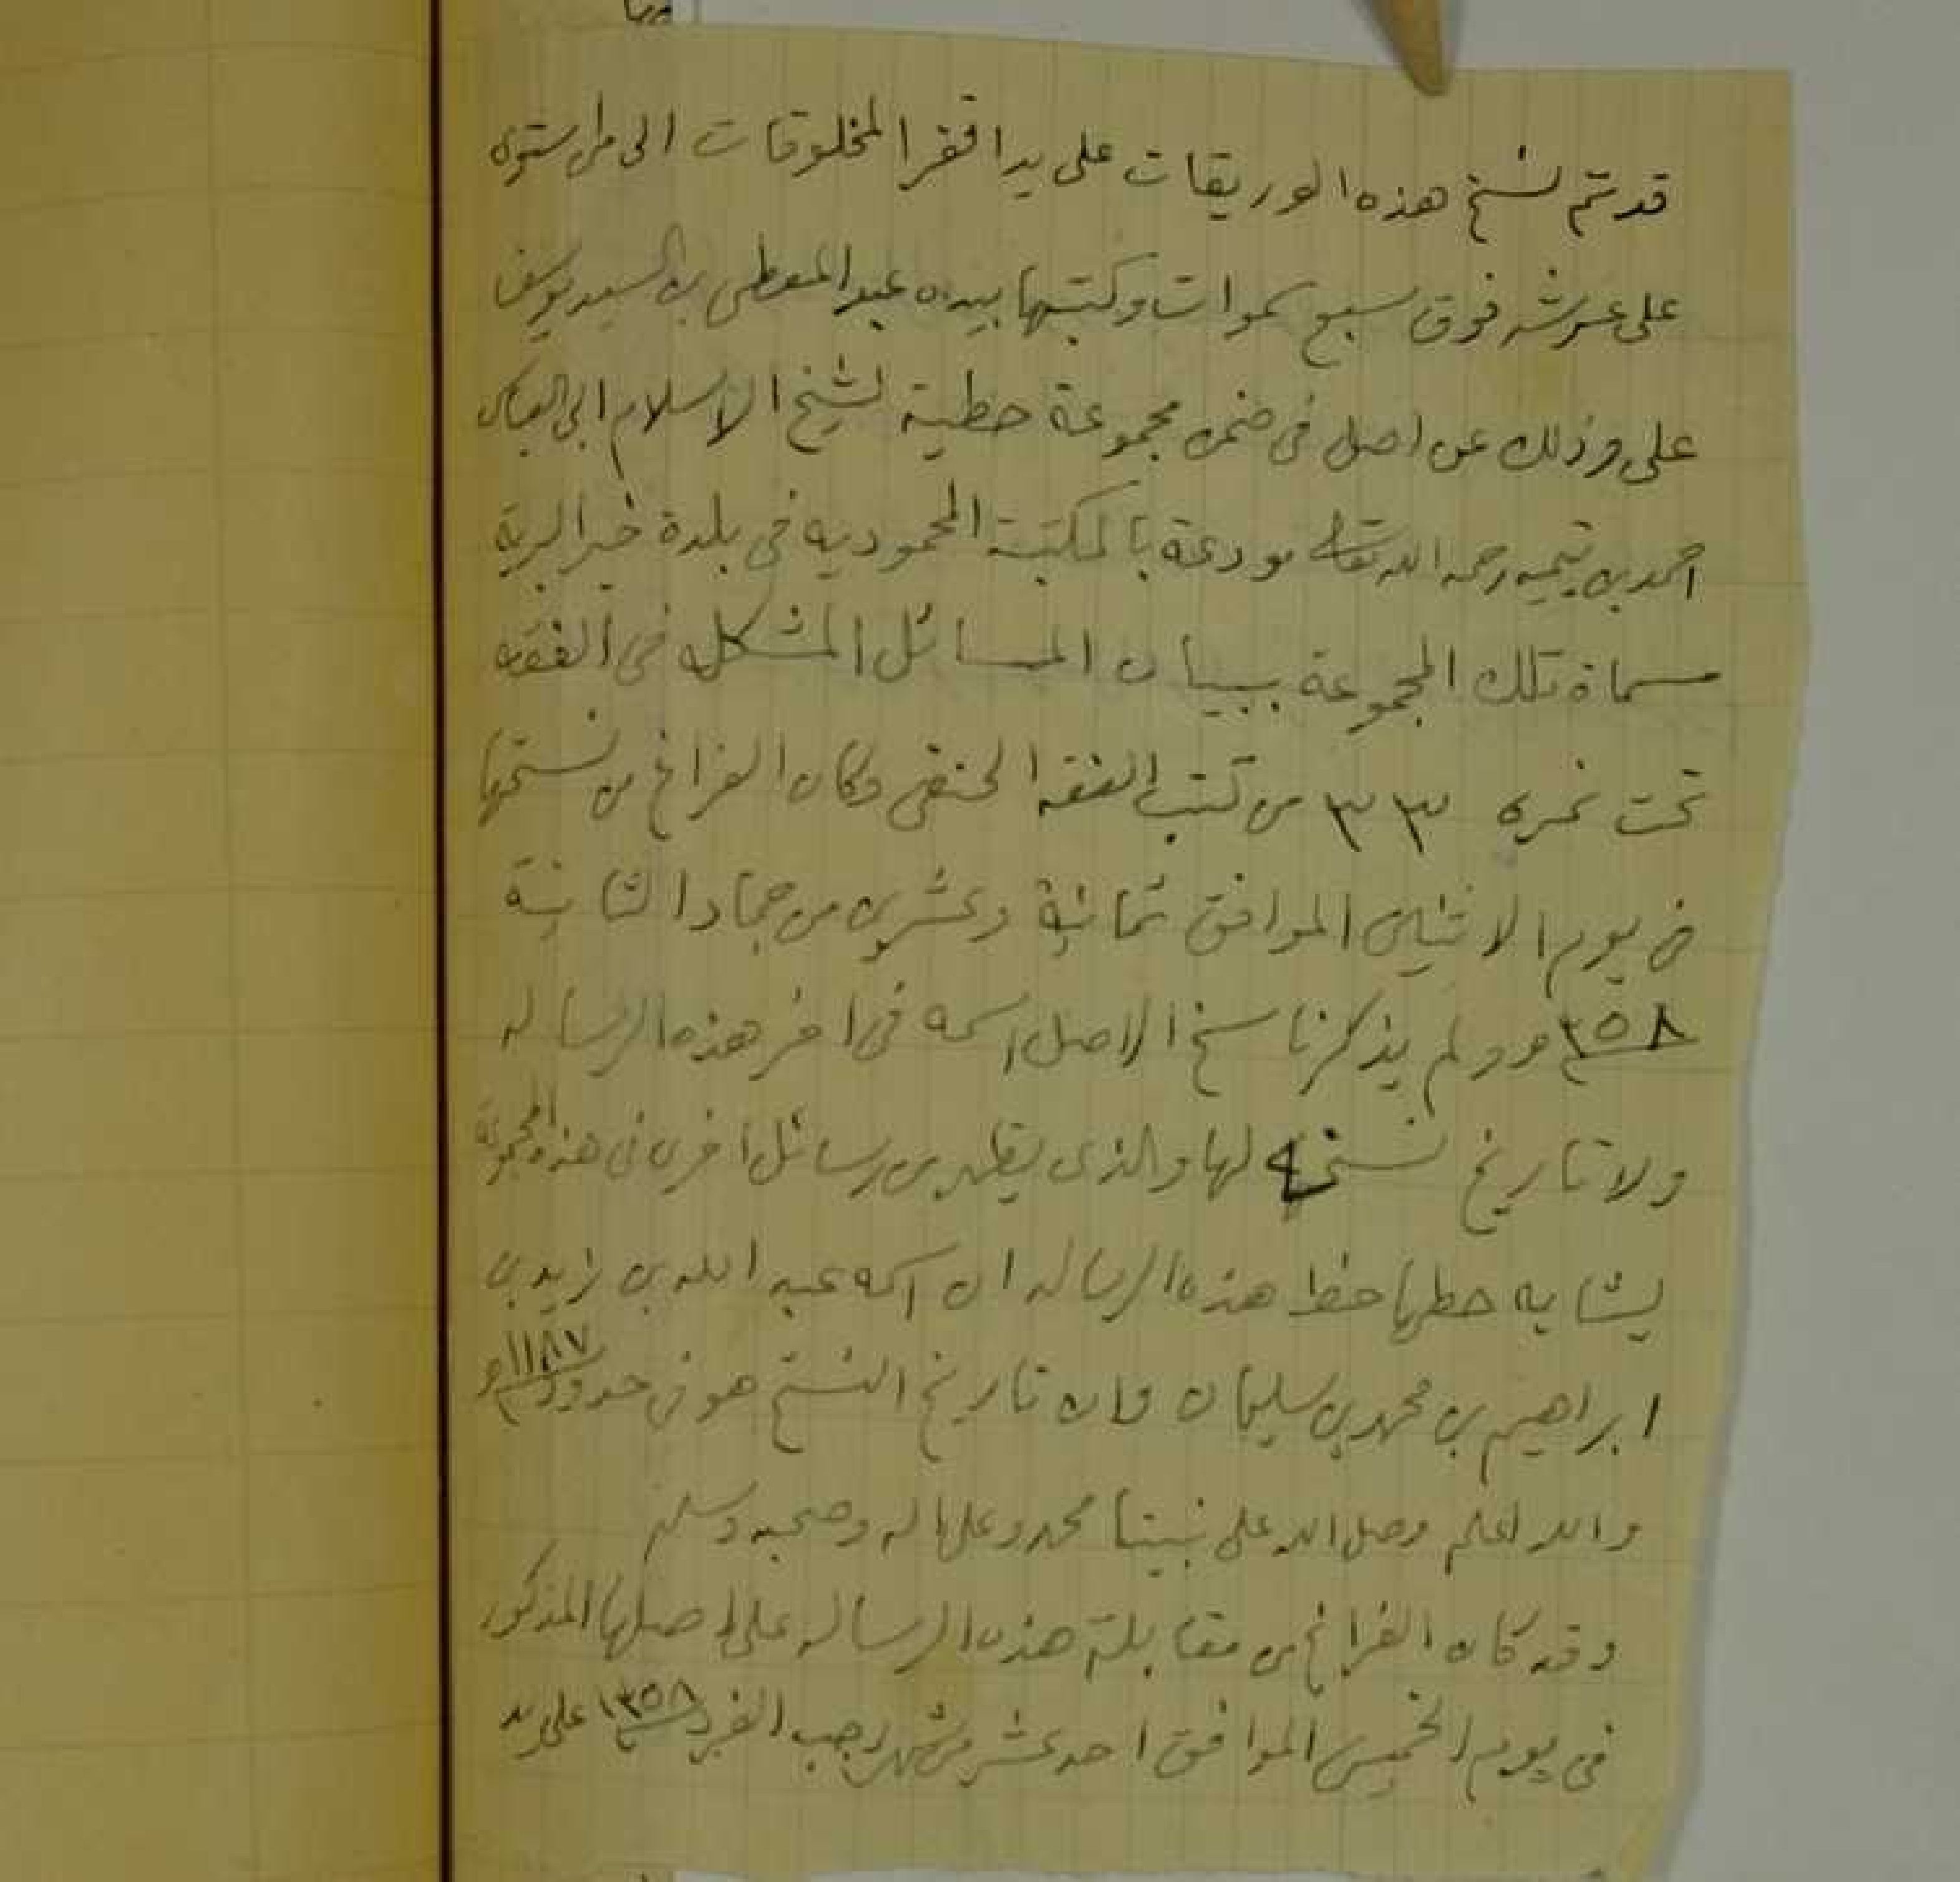 قد تم نسخ هذه الوريقات على يد افقر المخلوقات الى من استوى
على عرشه فوق سبع سموات وكتبها بيده عبد المعطى بن السيد يوسف
على وذلك عن اصل فى ضمن مجموعة خطية لشيخ الاسلام ابى العباس
احمد بن تيميه رحمه الله تعالى مودعة بالمكتبة المحموديه فى بلدة خير البرية
مسماة تلك المجموعة ببيان المسائل المشكله فى الفقه
تحت نمره ٣٣ من كتب الفقه الحنفى وكان الفراغ من نسخها
فى يوم الاثنين الموافق ثمانية وعشرين من جماد الثانية
١٣٥٨ه ولم يذكر ناسخ الاصل اسمه فى اخر هذه الرساله
ولا تاريخ نسخه لها والذى يظهر من رسائل اخرى فى هذه المجموعة
يشابه خطها خط هذه الرساله ان اسمه عبد الله بن زيد بن
ابراهيم بن محمد بن سليمان وان تاريخ النسخ هو فى حدود ١١٨٧ه
والله اعلم وصل الله على نبينا محمد وعلى اله وصحبه وسلم
وقد كان الفراغ من مقابلة هذه الرساله على اصلها المذكور
فى يوم الخميس الموافق احد عشر من شهر رجب الفرد ١٣٥٨ على يد